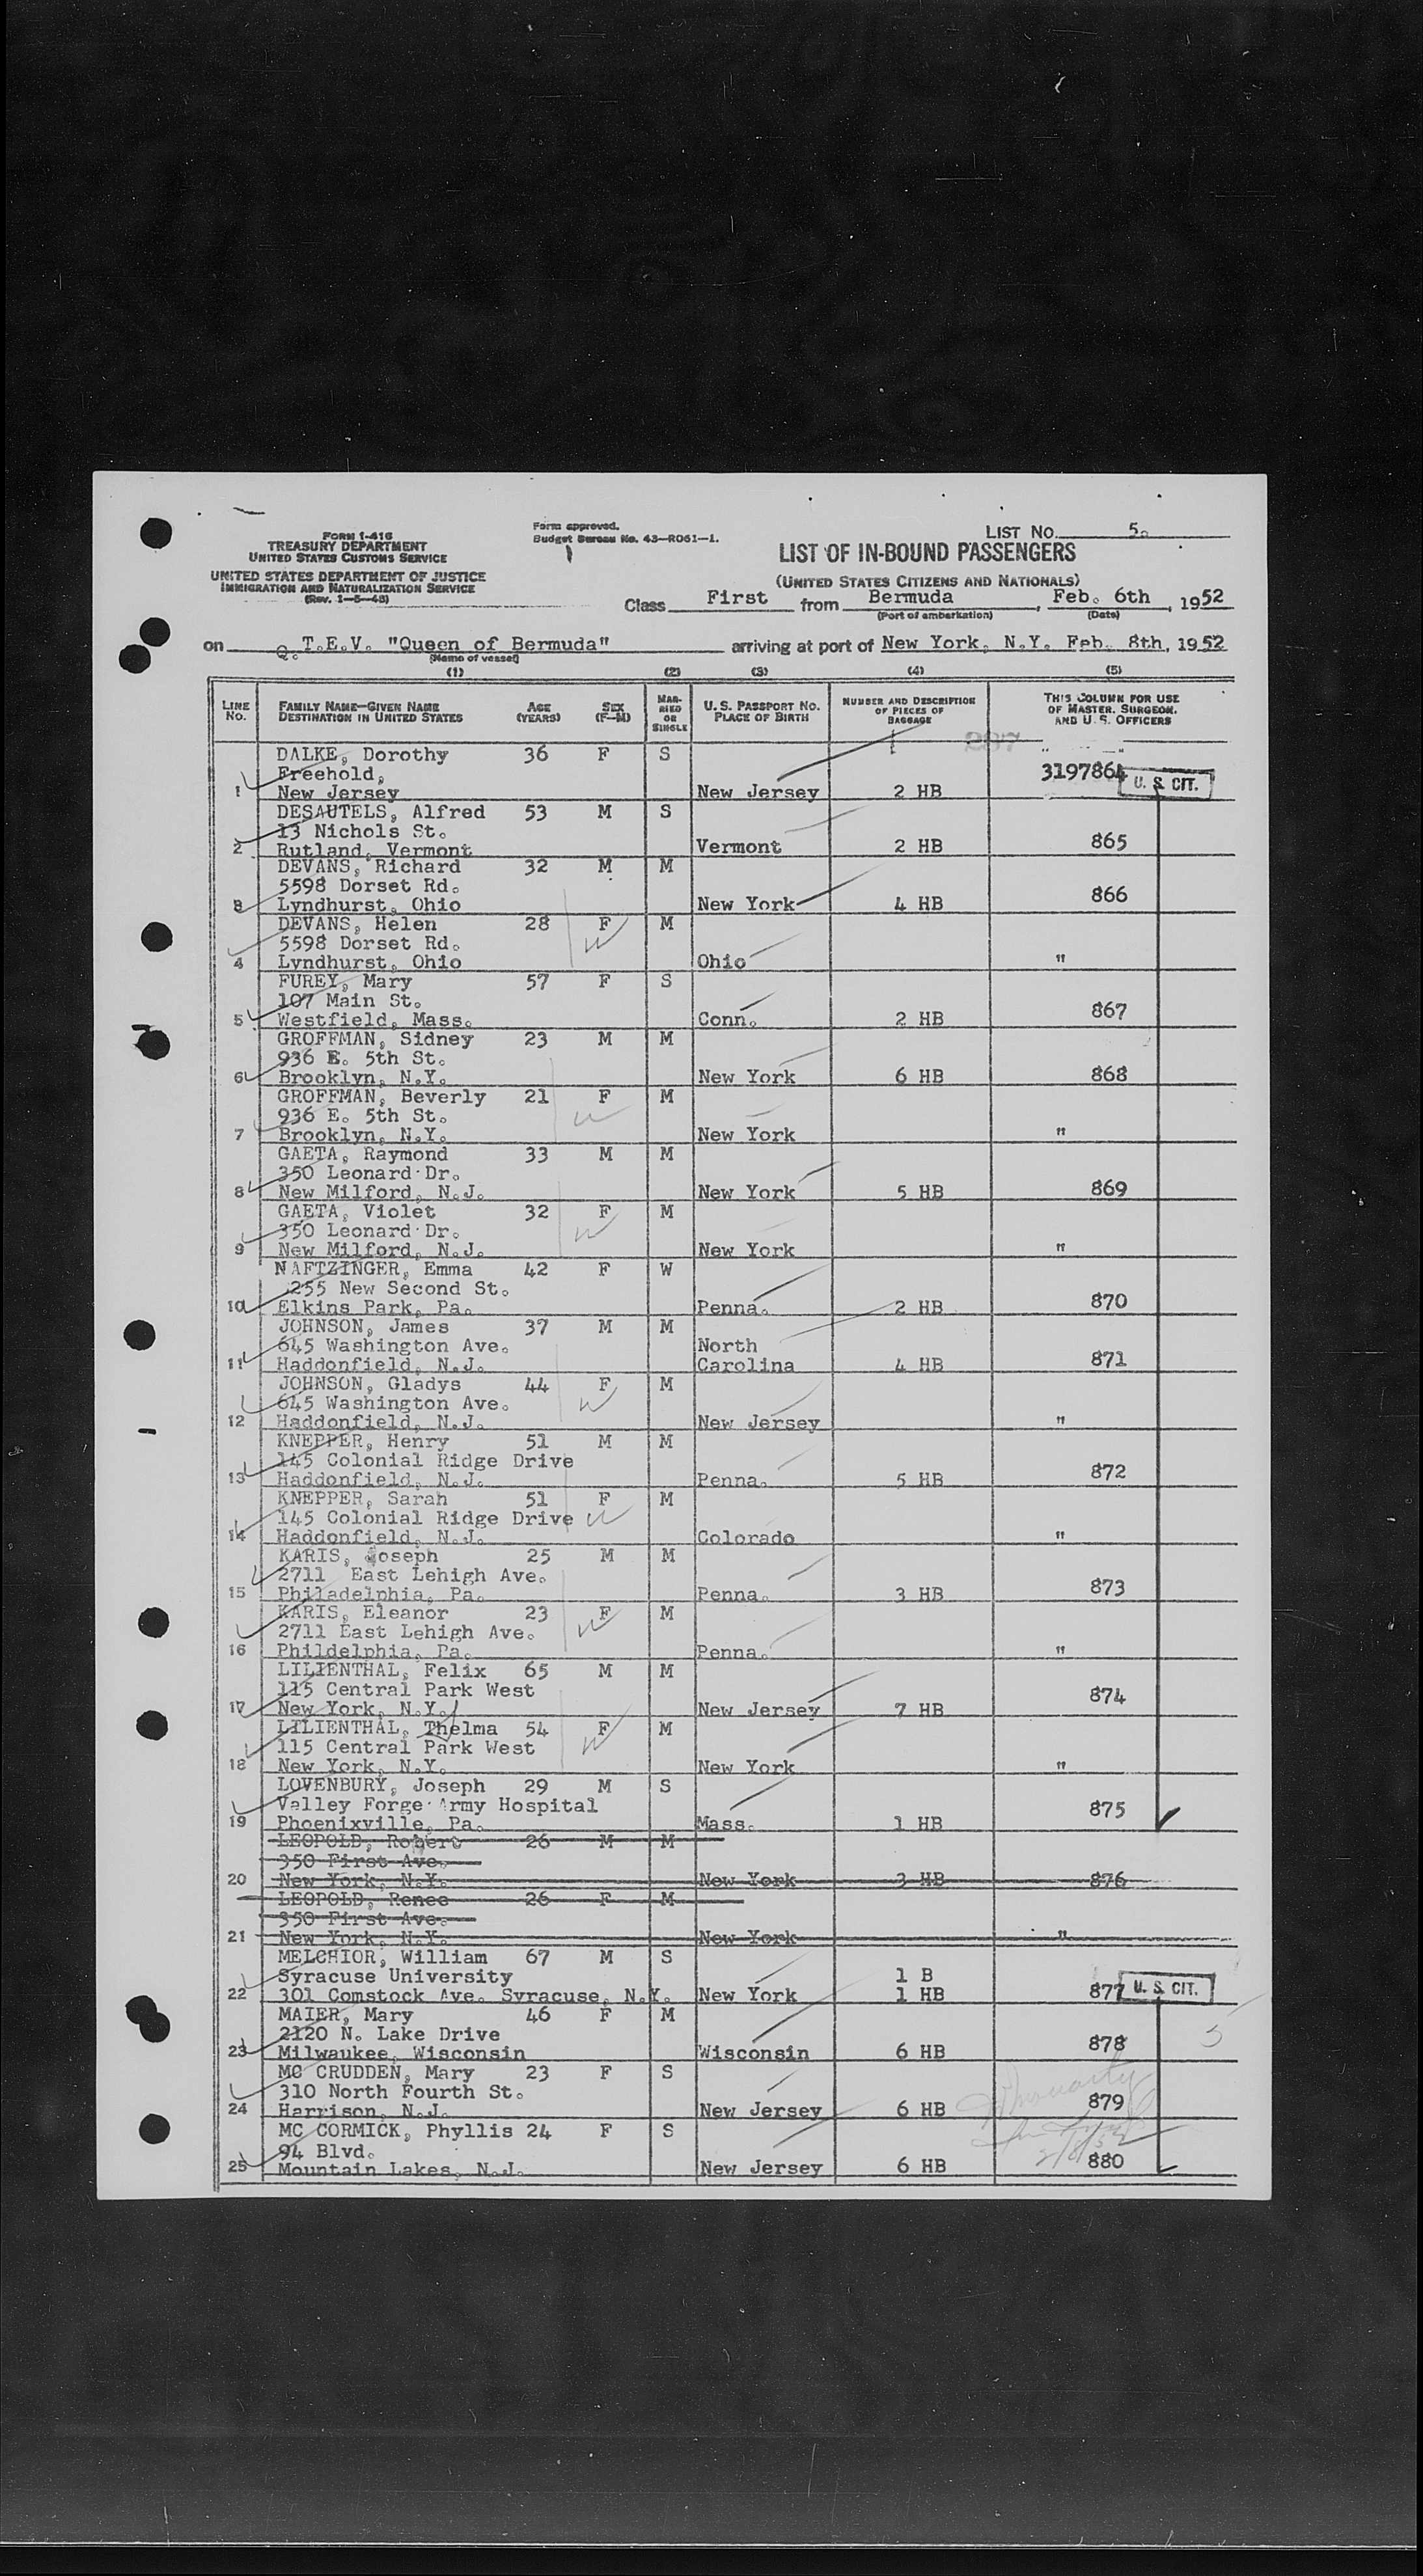 FORM I-416
TREASURY DEPARTMENT
UNITED STATES CUSTOMS SERVICE
UNITED STATES DEPARTMENT OF JUSTICE
IMMIGRATION AND NATURALIZATION SERVICE
(Rev. 1-5-48)
Form approved.
Budget Bureau No. 43-R061-1.
LIST NO. 5.
LIST OF IN-BOUND PASSENGERS
(UNITED STATES CITIZENS AND NATIONALS)
Class First from Bermuda, Feb. 6th, 1952
(Port of embarkation) (Date)
on Q.T.E.V. "Queen of Bermuda" arriving at port of New York, N.Y. Feb. 8th, 1952
(Name of vessel)
(1) (2) (3) (4) (5)
LINE NO. FAMILY NAME—GIVEN NAME DESTINATION IN UNITED STATES AGE (YEARS) SEX (F—M) MARRIED OR SINGLE U. S. PASSPORT NO. PLACE OF BIRTH NUMBER AND DESCRIPTION OF PIECES OF BAGGAGE THIS COLUMN FOR USE OF MASTER, SURGEON, AND U. S. OFFICERS
287
DALKE, Dorothy 36 F S
Freehold, 3197864 U. S. CIT.
1 New Jersey New Jersey 2 HB
DESAUTELS, Alfred 53 M S
13 Nichols St.
2 Rutland, Vermont Vermont 2 HB 865
DEVANS, Richard 32 M M
5598 Dorset Rd.
3 Lyndhurst, Ohio New York 4 HB 866
DEVANS, Helen 28 F M
5598 Dorset Rd.
4 Lyndhurst, Ohio Ohio "
FUREY, Mary 57 F S
107 Main St.
5 Westfield, Mass. Conn. 2 HB 867
GROFFMAN, Sidney 23 M M
936 E. 5th St.
6 Brooklyn, N.Y. New York 6 HB 868
GROFFMAN, Beverly 21 F M
936 E. 5th St.
7 Brooklyn, N.Y. New York "
GAETA, Raymond 33 M M
350 Leonard Dr.
8 New Milford, N.J. New York 5 HB 869
GAETA, Violet 32 F M
350 Leonard Dr.
9 New Milford, N.J. New York "
NAFTZINGER, Emma 42 F W
255 New Second St.
10 Elkins Park, Pa. Penna. 2 HB 870
JOHNSON, James 37 M M
645 Washington Ave. North
11 Haddonfield, N.J. Carolina 4 HB 871
JOHNSON, Gladys 44 F M
645 Washington Ave.
12 Haddonfield, N.J. New Jersey "
KNEPPER, Henry 51 M M
145 Colonial Ridge Drive
13 Haddonfield, N.J. Penna. 5 HB 872
KNEPPER, Sarah 51 F M
145 Colonial Ridge Drive
14 Haddonfield, N.J. Colorado "
KARIS, Joseph 25 M M
2711 East Lehigh Ave.
15 Philadelphia, Pa. Penna. 3 HB 873
KARIS, Eleanor 23 F M
2711 East Lehigh Ave.
16 Phildelphia, Pa. Penna. "
LILIENTHAL, Felix 65 M M
115 Central Park West
17 New York, N.Y. New Jersey 7 HB 874
LILIENTHAL, Thelma 54 F M
115 Central Park West
18 New York, N.Y. New York "
LOVENBURY, Joseph 29 M S
Valley Forge Army Hospital
19 Phoenixville, Pa. Mass. 1 HB 875
LEOPOLD, Robert 26 M M
350 First Ave.
20 New York, N.Y. New York 3 HB 876
LEOPOLD, Renee 26 F M
350 First Ave.
21 New York, N.Y. New York "
MELCHIOR, William 67 M S
Syracuse University 1 B
22 301 Comstock Ave. Syracuse, N.Y. New York 1 HB 877 U. S. CIT.
MAIER, Mary 46 F M
2120 N. Lake Drive
23 Milwaukee, Wisconsin Wisconsin 6 HB 878
MC CRUDDEN, Mary 23 F S
310 North Fourth St.
24 Harrison, N.J. New Jersey 6 HB 879
MC CORMICK, Phyllis 24 F S
94 Blvd.
25 Mountain Lakes, N.J. New Jersey 6 HB 880